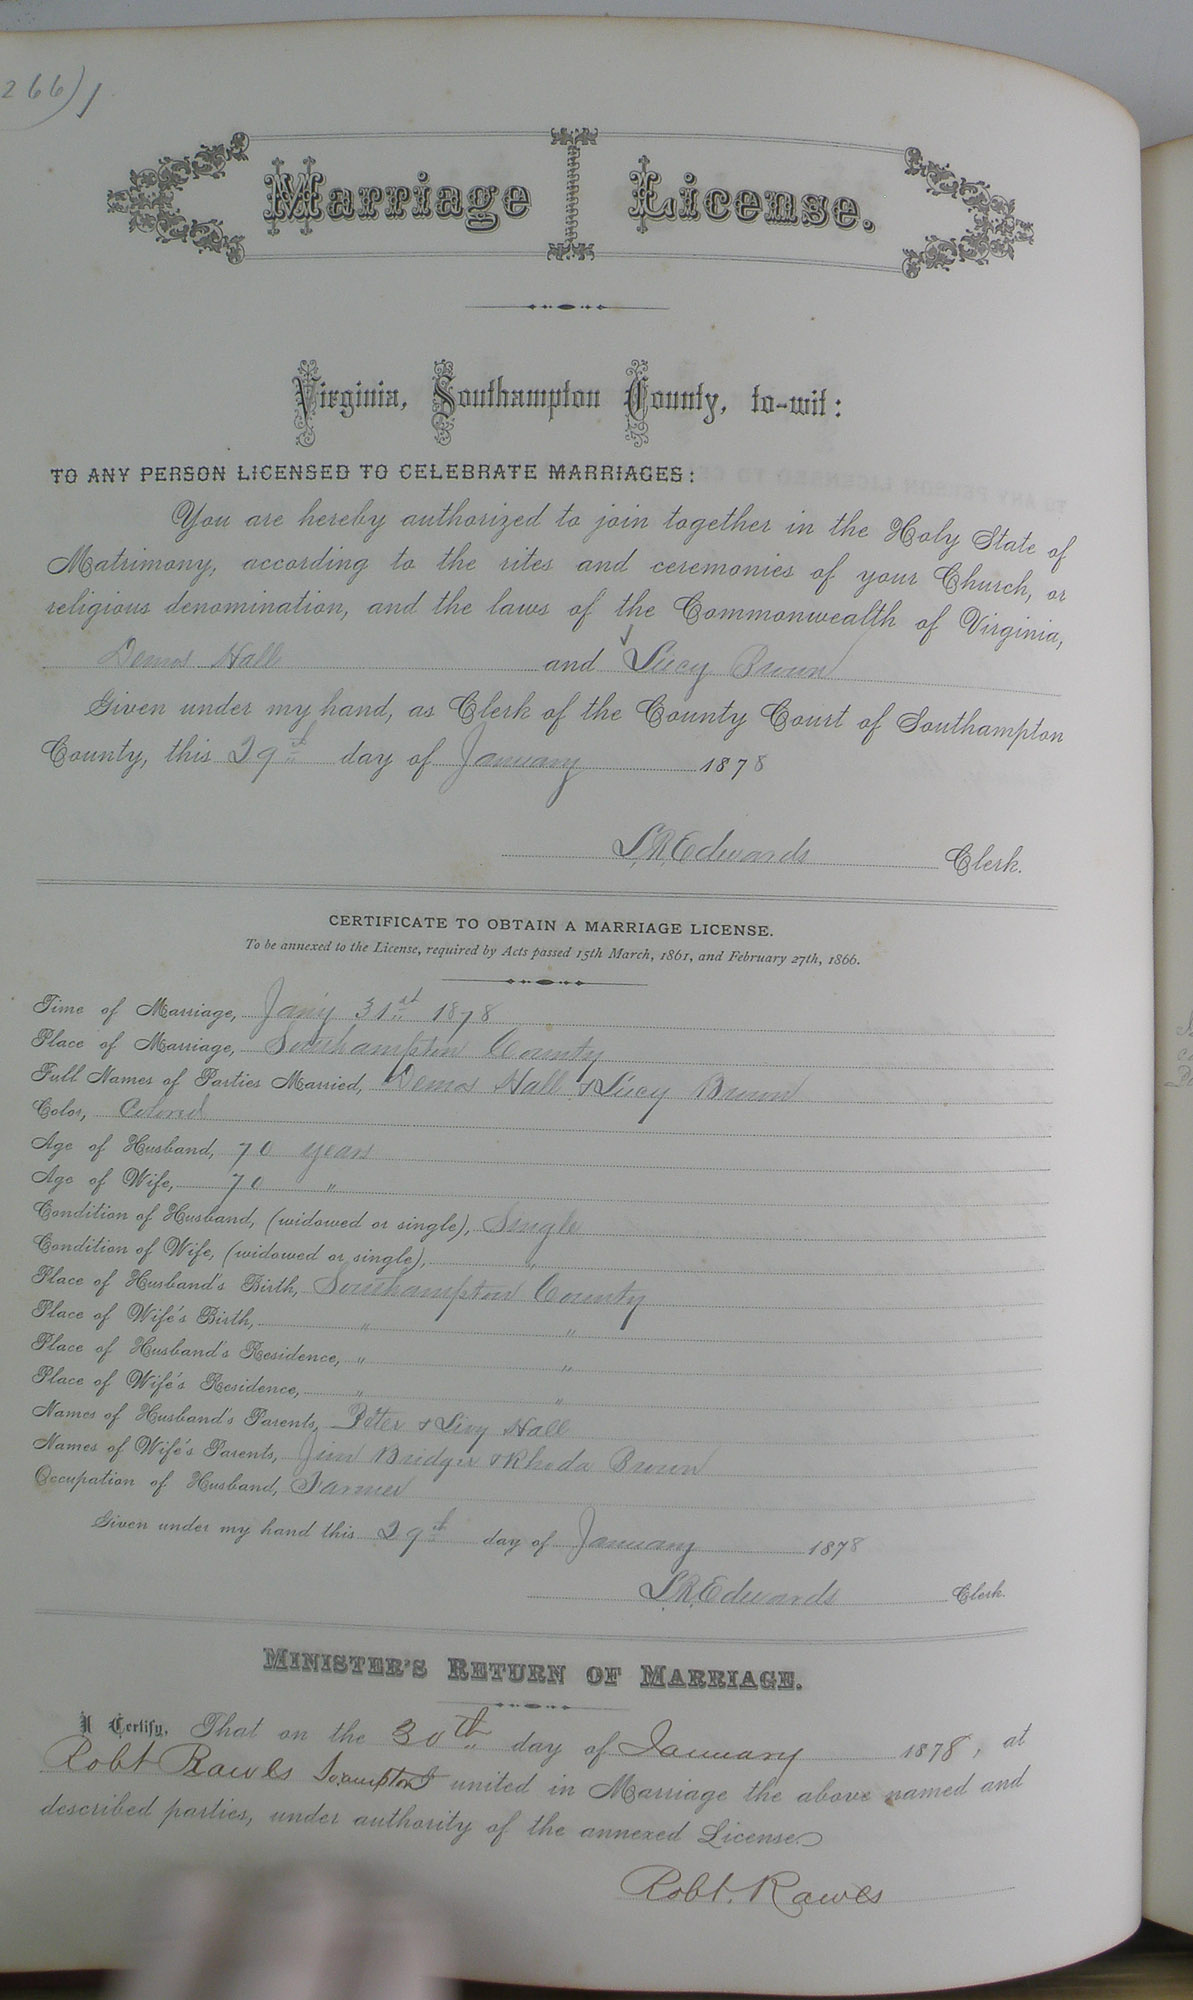 266) /
Marriage License.
Virginia, Southampton County, to-wit:
TO ANY PERSON LICENSED TO CELEBRATE MARRIAGES:
You are hereby authorized to join together in the Holy State of
Matrimony, according to the rites and ceremonies of your Church, or
religious denomination, and the laws of the Commonwealth of Virginia,
Demos Hall and Lucy Brown
Given under my hand, as Clerk of the County Court of Southampton
County, this 29th day of January 1878
L.R. Edwards Clerk.
CERTIFICATE TO OBTAIN A MARRIAGE LICENSE.
To be annexed to the License, required by Acts passed 15th March, 1861, and February 27th, 1866.
Time of Marriage, Jan'y 31st 1878
Place of Marriage, Southampton County
Full Names of Parties Married, Demos Hall & Lucy Brown
Color, Colored
Age of Husband, 70 years
Age of Wife, 70 "
Condition of Husband, (widowed or single), Single
Condition of Wife, (widowed or single), "
Place of Husband's Birth, Southampton County
Place of Wife's Birth, " "
Place of Husband's Residence, " "
Place of Wife's Residence, " "
Names of Husband's Parents, Peter & Livy Hall
Names of Wife's Parents, Jim Bridger & Rhoda Brown
Occupation of Husband, Farmer
Given under my hand this 29th day of January 1878
L.R. Edwards Clerk.
MINISTER'S RETURN OF MARRIAGE.
I Certify, That on the 30th day of January 1878, at
Robt Rawls united in Marriage the above named and
described parties, under authority of the annexed License.
Robt. Rawls